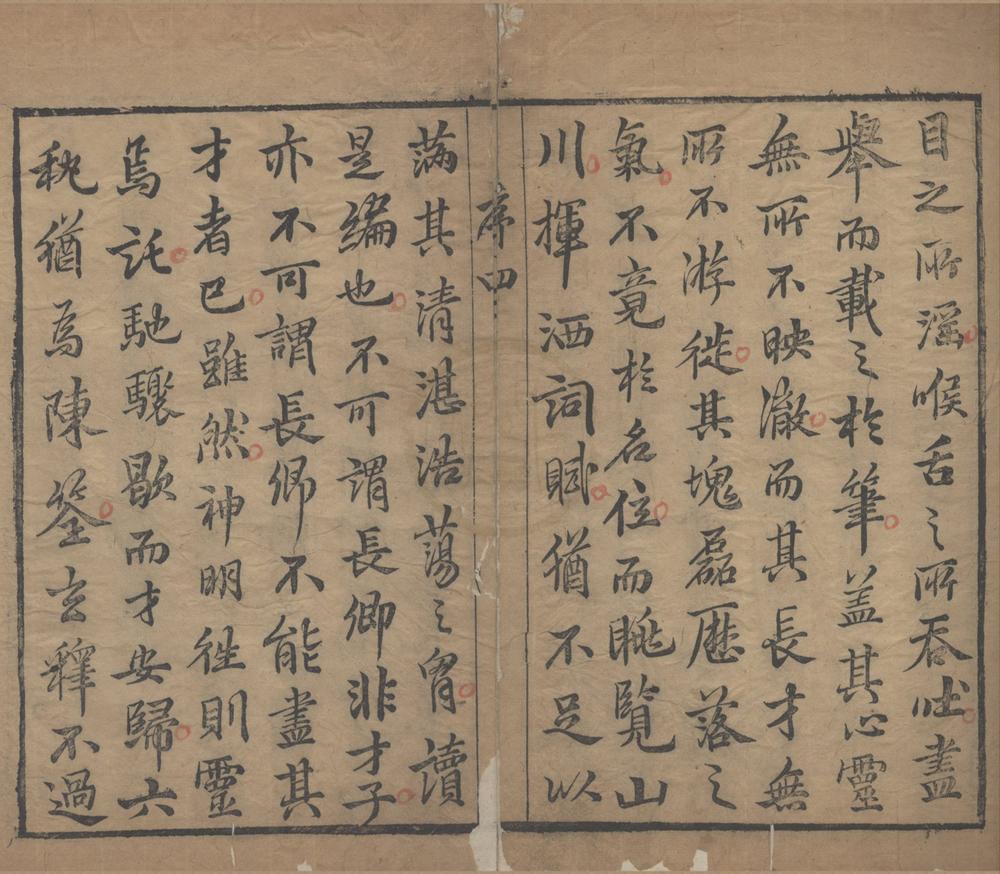 目之所滛喉舌之所吞吐盡
舉而載之於筆盖其心靈
無所不映澈而其長才無
所不游從其塊磊歴落之
氣不竟於名位而眺覽山
川揮洒詞賦猶不足以
序四
滿其清湛浩蕩之胷讀
是編也不可謂長卿非才子
亦不可謂長卿不能盡其
才者巳雖然神明徃則靈
焉託馳驟歇而才安歸六
秇猶為陳筌玄釋不過